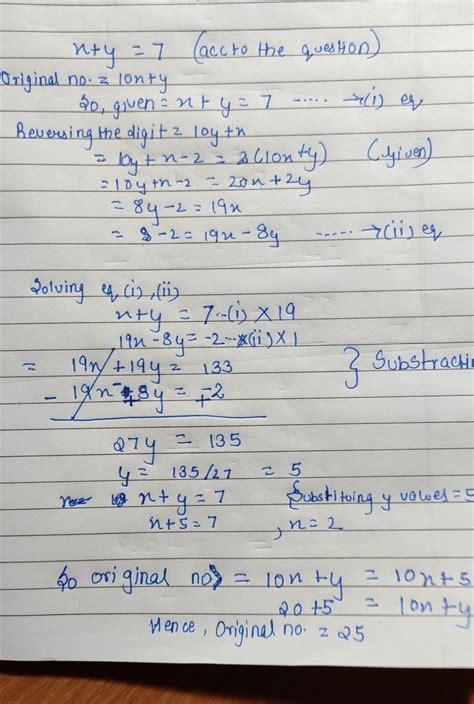 x+y = 7 (acc to the question)
Original no. = 10x+y
So, given = x + y = 7 ----- →(i) eq
Reversing the digit = 10y+x
= 10y+x-2 = 2(10x+y) (Given)
= 10y+x-2 = 20x+2y
= 8y-2 = 19x
= -2 = 19x - 8y ----- →(ii) eq
Solving eq (i), (ii)
x+y = 7--(i) × 19
19x-8y = -2--(ii) × 1
= 19x + 19y = 133 } Substracti
- 19x - 8y = -2
+ +
27y = 135
y = 135/27 = 5
x+y = 7 {Substituing y values = 5
x+5 = 7 , x = 2
So original no = 10x+y = 10x+5
20+5 = 10x+y
Hence, Original no. = 25